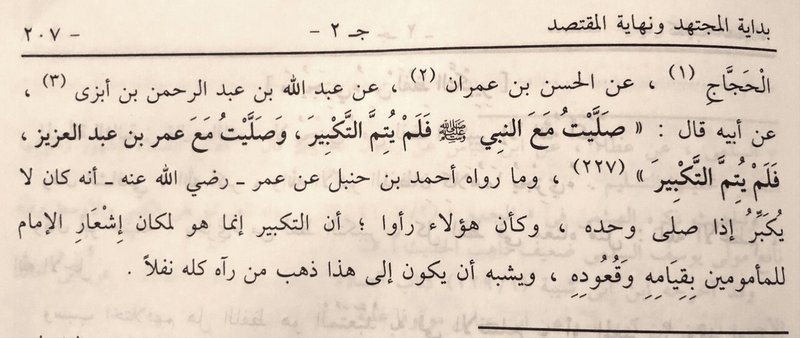 بداية المجتهد ونهاية المقتصد جـ ٢ - - ٢٠٧ -
الْحَجَّاجِ (١) ، عن الحسن بن عمران (٢) ، عن عبد الله بن عبد الرحمن بن أبزى (٣) ،
عن أبيه قال : « صَلَّيْتُ مَعَ النبي ﷺ فَلَمْ يُتِمَّ التَّكْبِيرَ ، وَصَلَّيْتُ مَعَ عمر بن عبد العزيز ،
فَلَمْ يُتِمَّ التَّكْبِيرَ » (٢٢٧) ، وما رواه أحمد بن حنبل عن عمر ـ رضي الله عنه ـ أنه كان لا
يُكَبِّرُ إذا صلى وحده ، وكأن هؤلاء رأوا ؛ أن التكبير إنما هو لمكان إِشْعَارِ الإمام
للمأمومين بِقِيَامِهِ وَقُعُودِهِ ، ويشبه أن يكون إلى هذا ذهب من رآه كله نفلاً .